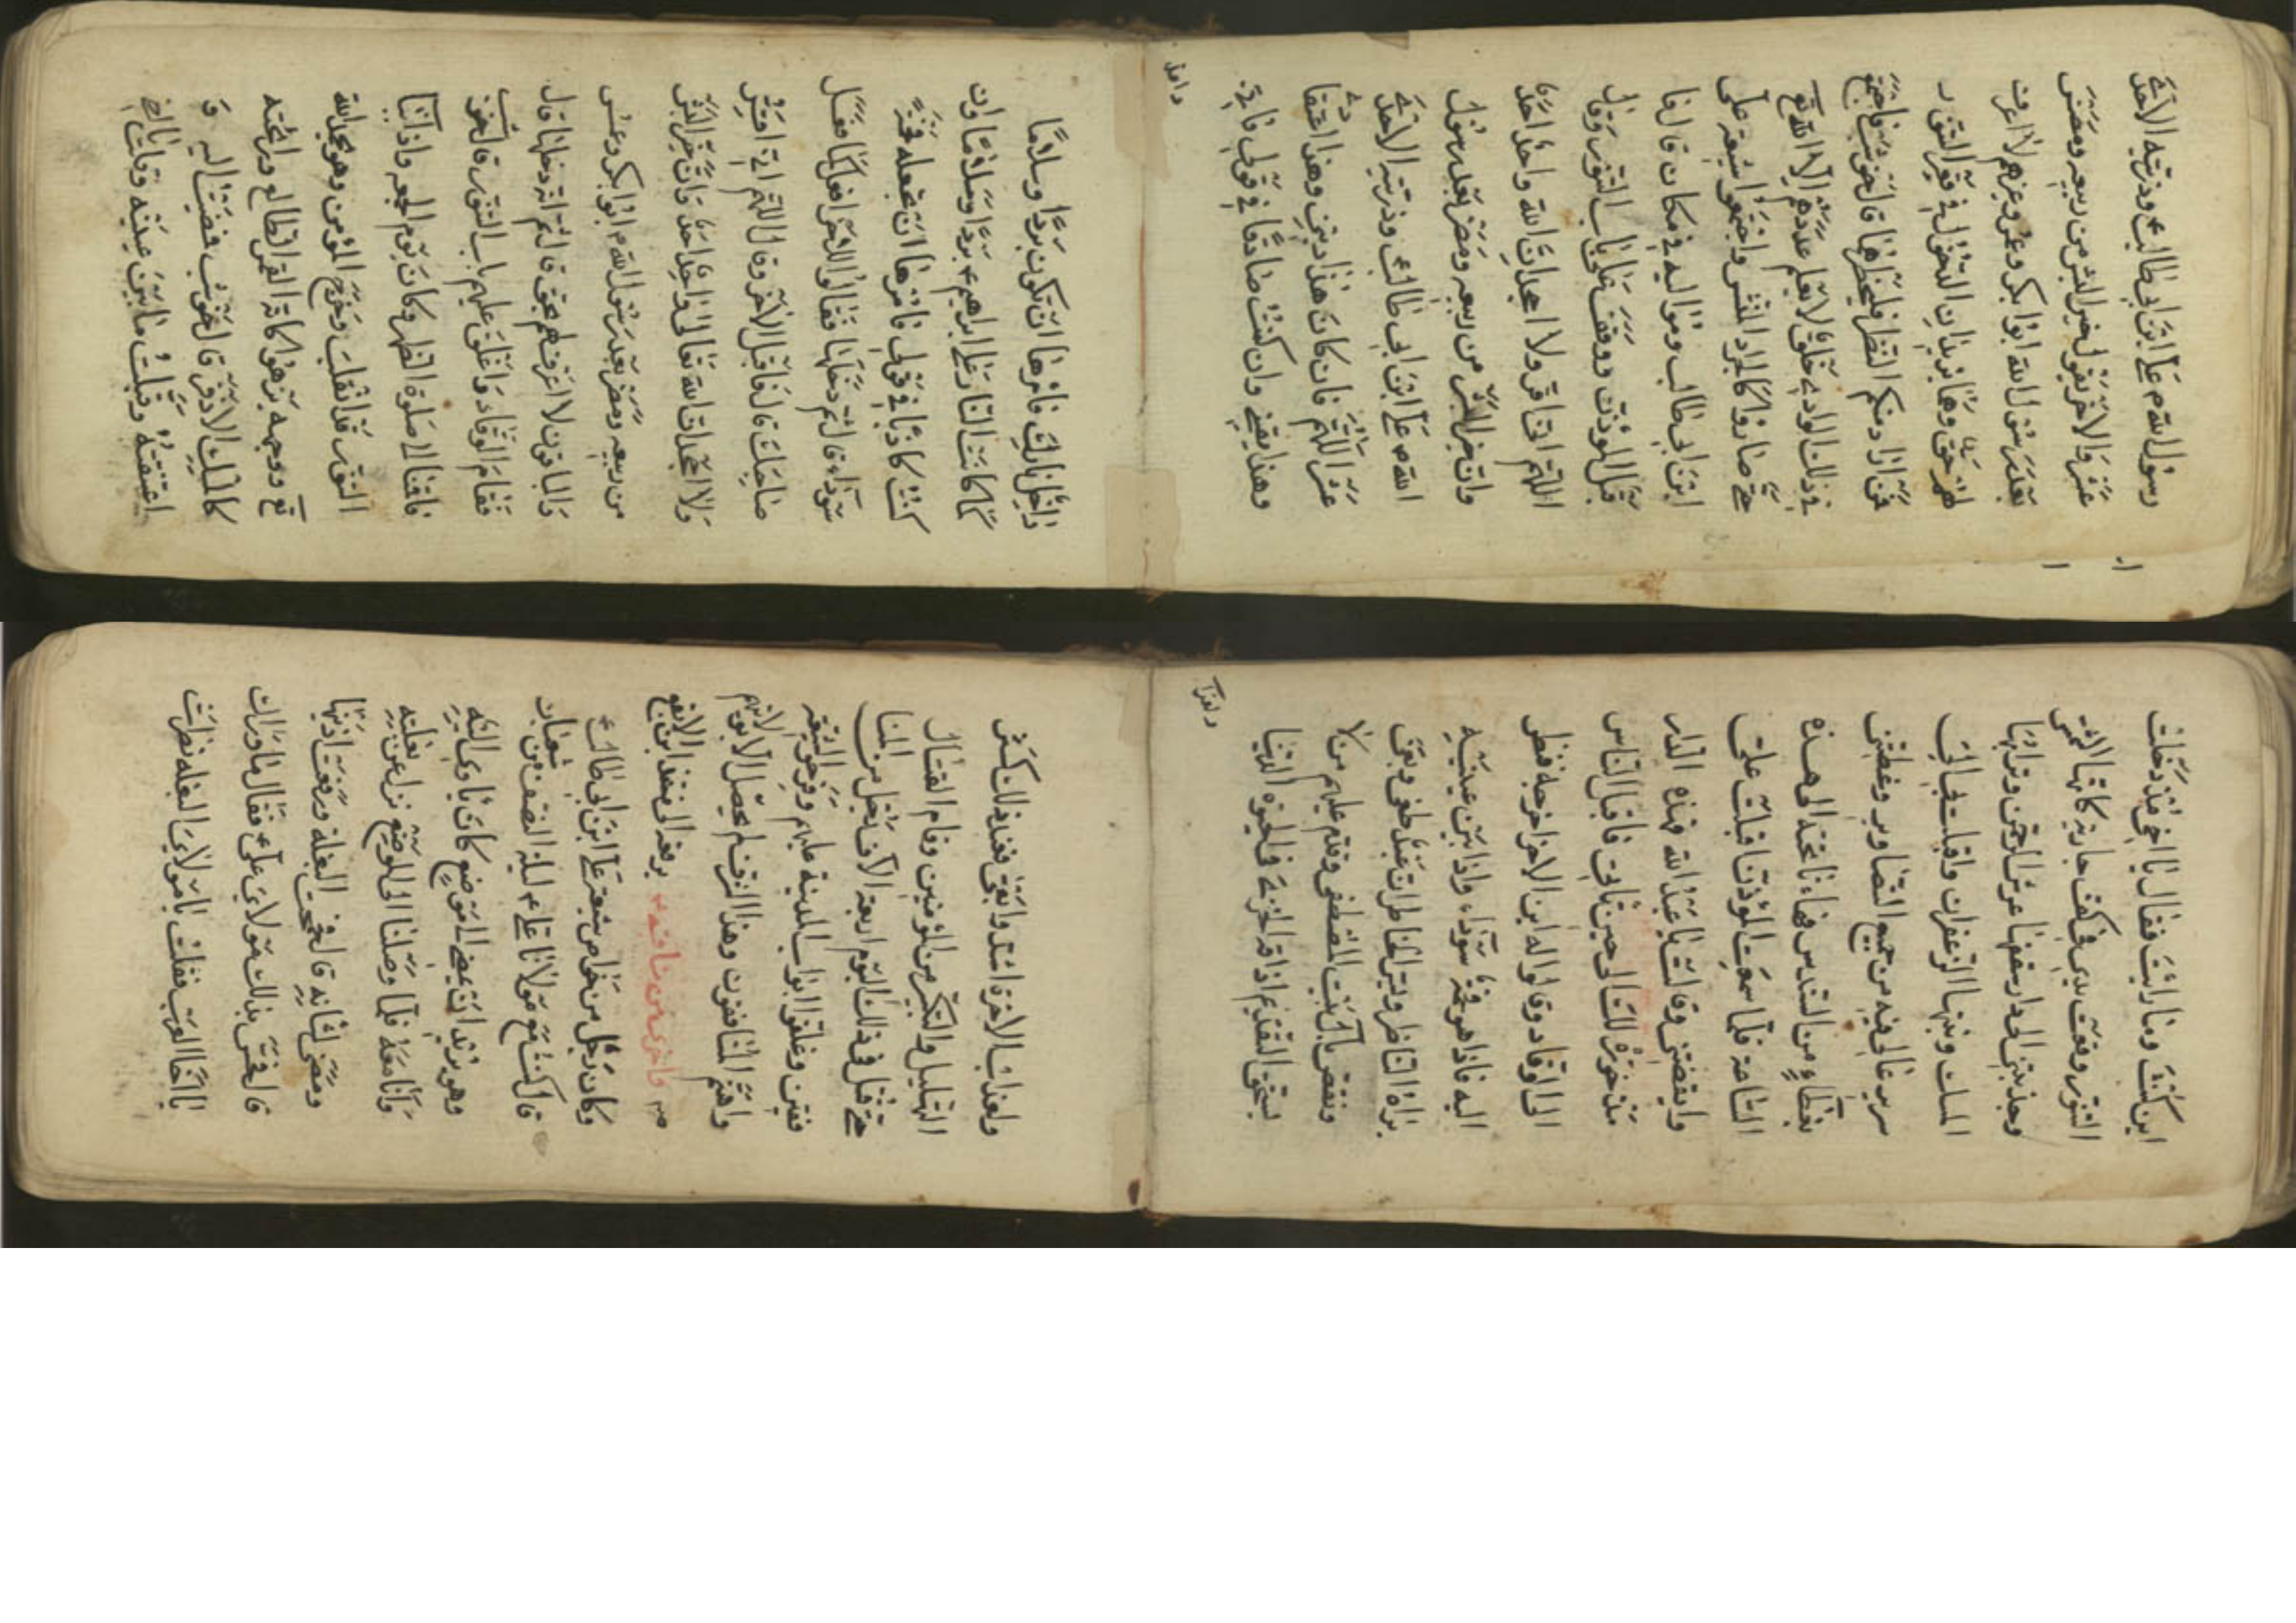 رسول الله ص علي ابن ابي طالب ع وذريته الاحد
عشر والاخر يقول خير البشر من ربيعه ومضر
بعد رسول الله ابو بكر وعمر وغيرهم لا اعرف
لهم حق وهما يريدان الدخول في قعر التنور
فمن اراد منكم النظر فليحظرهما قال الحوشب فاجتمع
في ذلك الوادي خلق لا يعلم عددهم الا الله تع
حتى صاروا كالجراد المنتشر واجتمعوا شيعة علي
ابن ابي طالب ومواليه في مكان قال
قبل الموذن ووقف على باب التنور وقال
اللهم اني اقر ولا اجحد ان الله واحد احدا
وان خير البشر من ربيعه ومضر بعد رسول
الله ص علي ابن ابي طالب وذريته الاحد
عشر اللهم فان كان هذا ديني وهذا اعتقادي
وهذا يقيني وان كنت صادقا في قولي فاني
داخل اليك فامرها ان تكون بردا وسلاما
كما كانت النار على ابراهيم ع بردا وسلاما وان
كنت كاذبا في قولي فامرها ان تجعله فحمة
سوداء قال ثم دخلها فقالوا للاخر افعل كما فعل
صاحبك قال فاقبل الاخر وقال اللهم اني اقر
ولا اجحد ان الله تعالى واحد احد وان خير البشر
من ربيعه ومضر بعد رسول الله ص ابو بكر وعمر
والباقون لا اعرف لهم حق قال ثم انه دخلها قال
فقام الوقاد واغلق عليهم باب التنور قال الحوشب
فاقمنا الى صلوة الظهر وكان يوم الجمعه واذ اتينا
التنور قد انفلت وخرج المؤمن وهو يحمد الله
تع ووجهه يزهو كانه القمر الطالع ورائحته
كالمسك الاذفر قال الحوشب فمضيت اليه و
اعتنقته وقبلت ما بين عينيه وقلت
اين كنت وما رايت فقال يا اخي منذ دخلت
التنور وقعت يدي في كف جاريه كانها الشمس
وجذبتني الى دار سقفها عرش الرحمن وترابها
المسك ونبتها الزعفران واقبلت بي الى
سرير عالي فيه من جميع التصاوير وغطتني
بغطاء من السندس فها انا تحته الى هذه
الساعة فلما سمعت الموذن اقبلت علي
وايقضتني وقالت يا عبد الله فهذه الدار
مذخورة لك الى حين تاتي فاقبل الناس
الى الوقاد وقالوا له اين الاخر اخرجه فنظر
اليه فاذا هو فحمة سوداء واذا بين عينيه
يراه الناظر وليس الخاطر ان عبد طغى وبغى
ونقص باهل بيت المصطفى وقدم عليهم من لا
يستحق التقديم اذاقه الخزي في الحيوة الدنيا
ولعذا
ولعذاب الاخرة اشد وابقى فعند ذلك كثر
التهليل والتكبير من المؤمنين وقام القتال
حتى قتل في ذلك اليوم اربعة الاف رجل من المنا
فقين وغلقوا ابواب المدينة عليهم وفرحوا الشيعه
واهتم المنافقون وهذا الشرف لم يحصل الا
واخرى من مناقبه ع يرفعه الى
وكان رجل من خواص شيعة علي ابن ابي طالب ع
قال كنت مع مولانا علي ع ليلة النصف من شعبان
وهو يريد ان يمضي الى موضع كان ياوي اليه
وانا معه فلما وصلنا الى الموضع نزل عن بغلته
ومضى لشانه قال فحمحمت البغلة ورفعت اذنيها
قال فحس بذلك مولاي علي ع فقال ما وراك
يا اخا العرب فقلت يا مولاي البغله نظرت